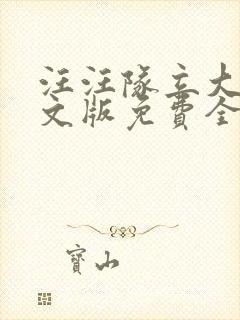 汪汪隊立大
文版免費全
寶山